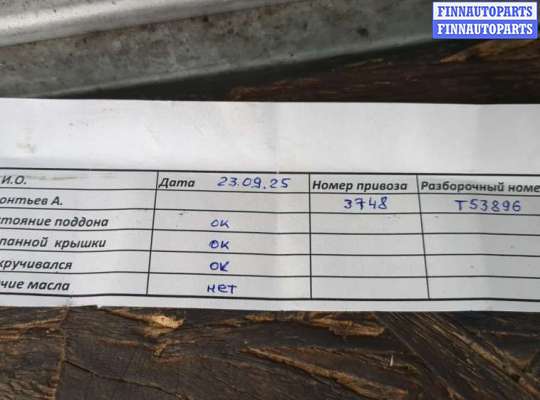 FINNAUTOPARTS
FINNAUTOPARTS
И.О. Дата 23.09.25 Номер привоза Разборочный номе
онтьев А. 3748 Т53896
тояние поддона ок
панной крышки ок
кручивался ок
чие масла нет